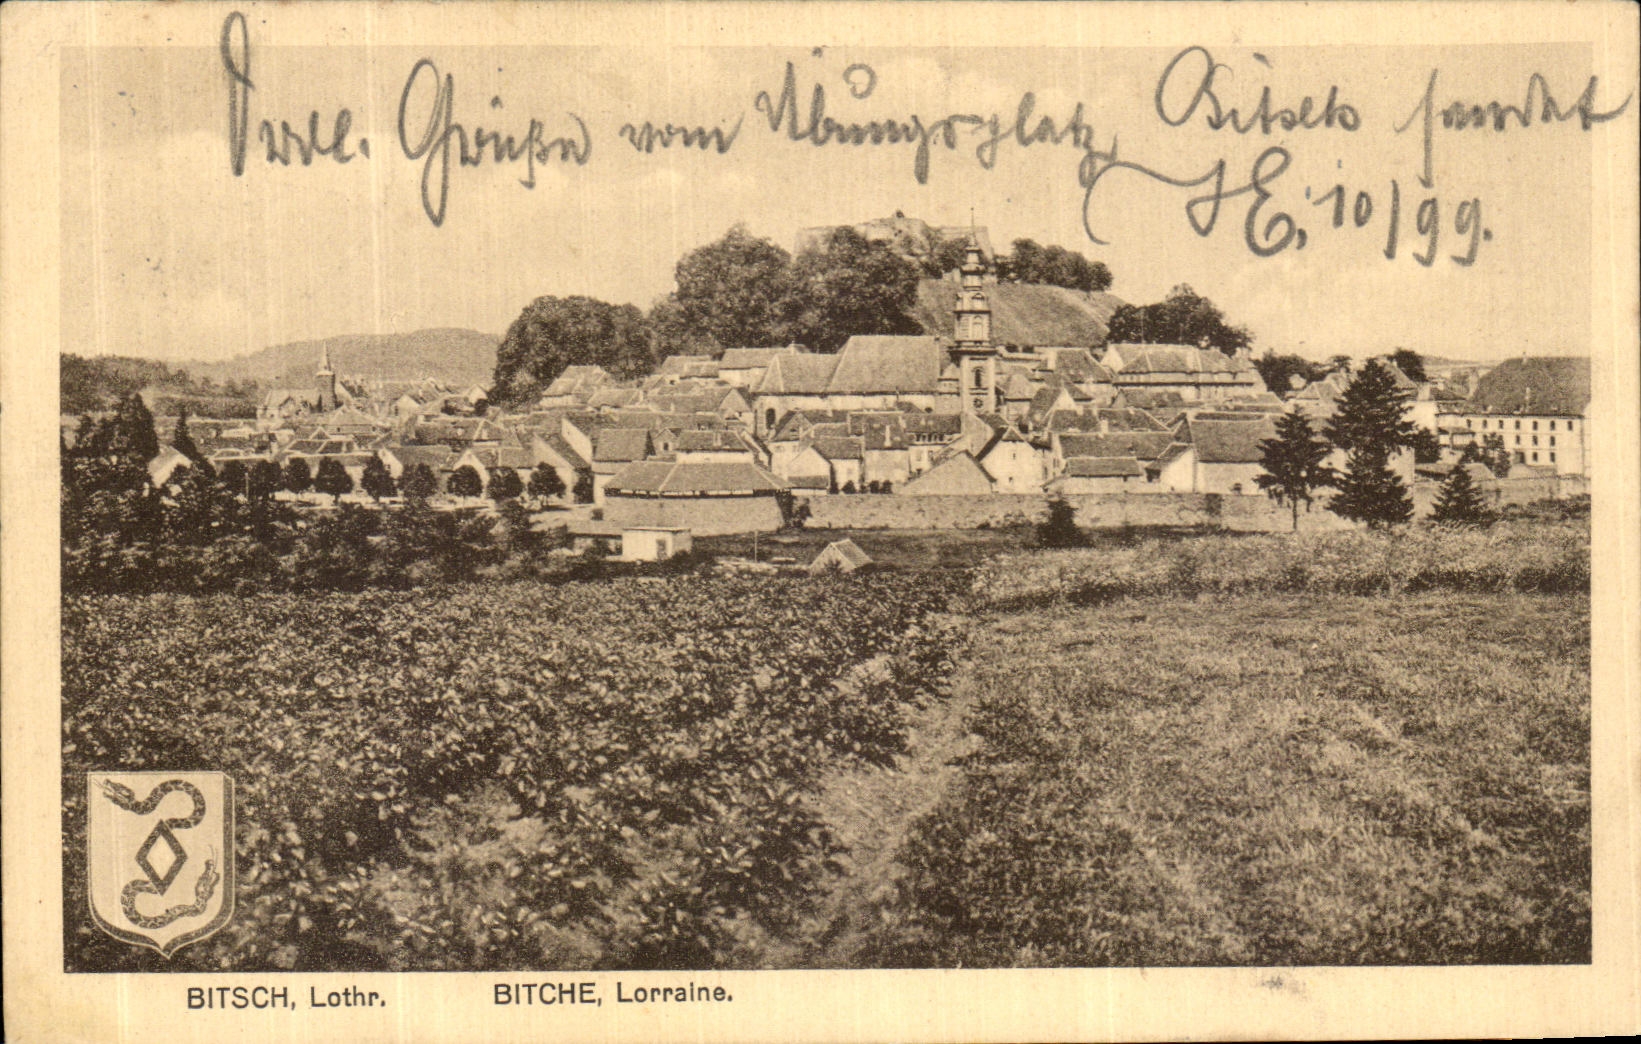 Grüße vom Übungsplatz Bitsch sendet
E. 10/99.
BITSCH, Lothr. BITCHE, Lorraine.